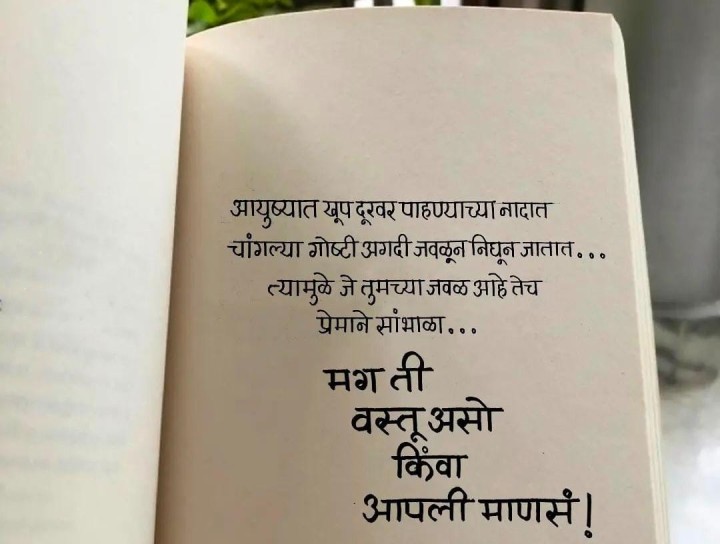 आयुष्यात खूप दूरवर पाहण्याच्या नादात
चांगल्या गोष्टी अगदी जवळून निघून जातात...
त्यामुळे जे तुमच्या जवळ आहे तेच
प्रेमाने सांभाळा...
मग ती
वस्तू असो
किंवा
आपली माणसं!